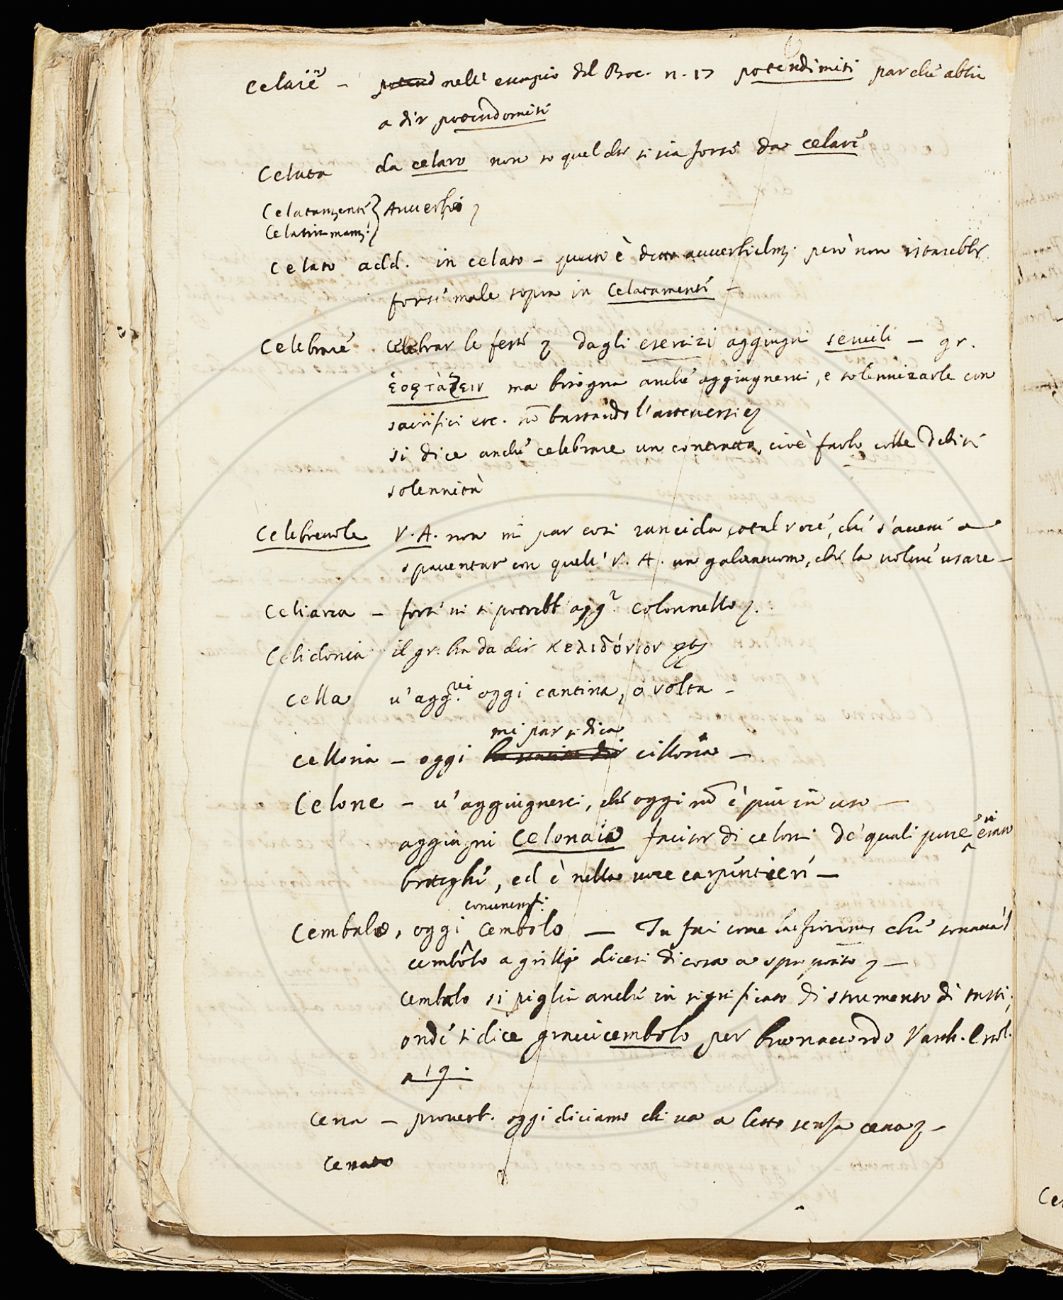 Celare – nell'esempio del Boc. n. 17 potendimiti par che abbi
a dir potendomiti
Celata da celato non so quel che si sia forse da celare
Celatamente } Auuerbi
Celatissimamente
Celato add. in celato – questo è detto auuerbialm. però non istarebbe
forse male sopra in Celatamente –
Celebrare Celebrar le feste dagli esercizi aggiugni seruili – gr.
ἑορτάζειν ma bisogna anche aggiugnerui, e solennizarle con
sacrifici etc. nō bastando l'astenersi
si dice anche celebrare un contratto, cioè farlo colle debite
solennità
Celebreuole V. A. non mi par così rancida cotal voce, che s'auesse a
spauentar con quell' V. A. un galantuomo, che la volesse usare –
Celiarca – forse ui si potrebbe agg. colonnello
Celidonia il gr. ha da dir χελιδόνιον
Cella u'agg. oggi cantina, o volta –
mi par si dica
Celloria – oggi cilloria –
Celone – u'aggiugnerei, che oggi nō è più in uso –
aggiugni Celonaio facitor di celoni de' quali pure ui erano
botteghe, ed è nella voce carpentieri –
comunem.
Cembalo, oggi Cembolo – Tu fai come che sonaua 'l
cembolo a grilli dicesi di cosa a sproposito –
Cembalo si piglia anche in significato di strumento di tasti,
onde si dice grauicembolo per buonaccordo Varch. Ercol.
a 19.
Cena – prouerb. oggi diciamo chi va a letto senza cena –
Cenato